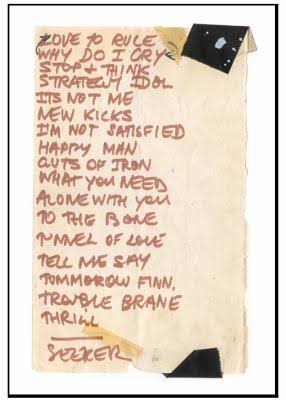 LOVE TO RULE
WHY DO I CRY
STOP & THINK
STRATEGY IDOL
ITS NOT ME
NEW KICKS
I'M NOT SATISFIED
HAPPY MAN
GUTS OF IRON
WHAT YOU NEED
ALONE WITH YOU
TO THE BONE
TUNNEL OF LOVE
TELL ME SAY
TOMMOROW FINN.
TROUBLE BRANE
THRILL
SEEKER